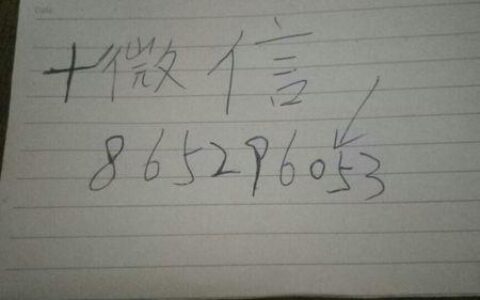 +微信
865296053